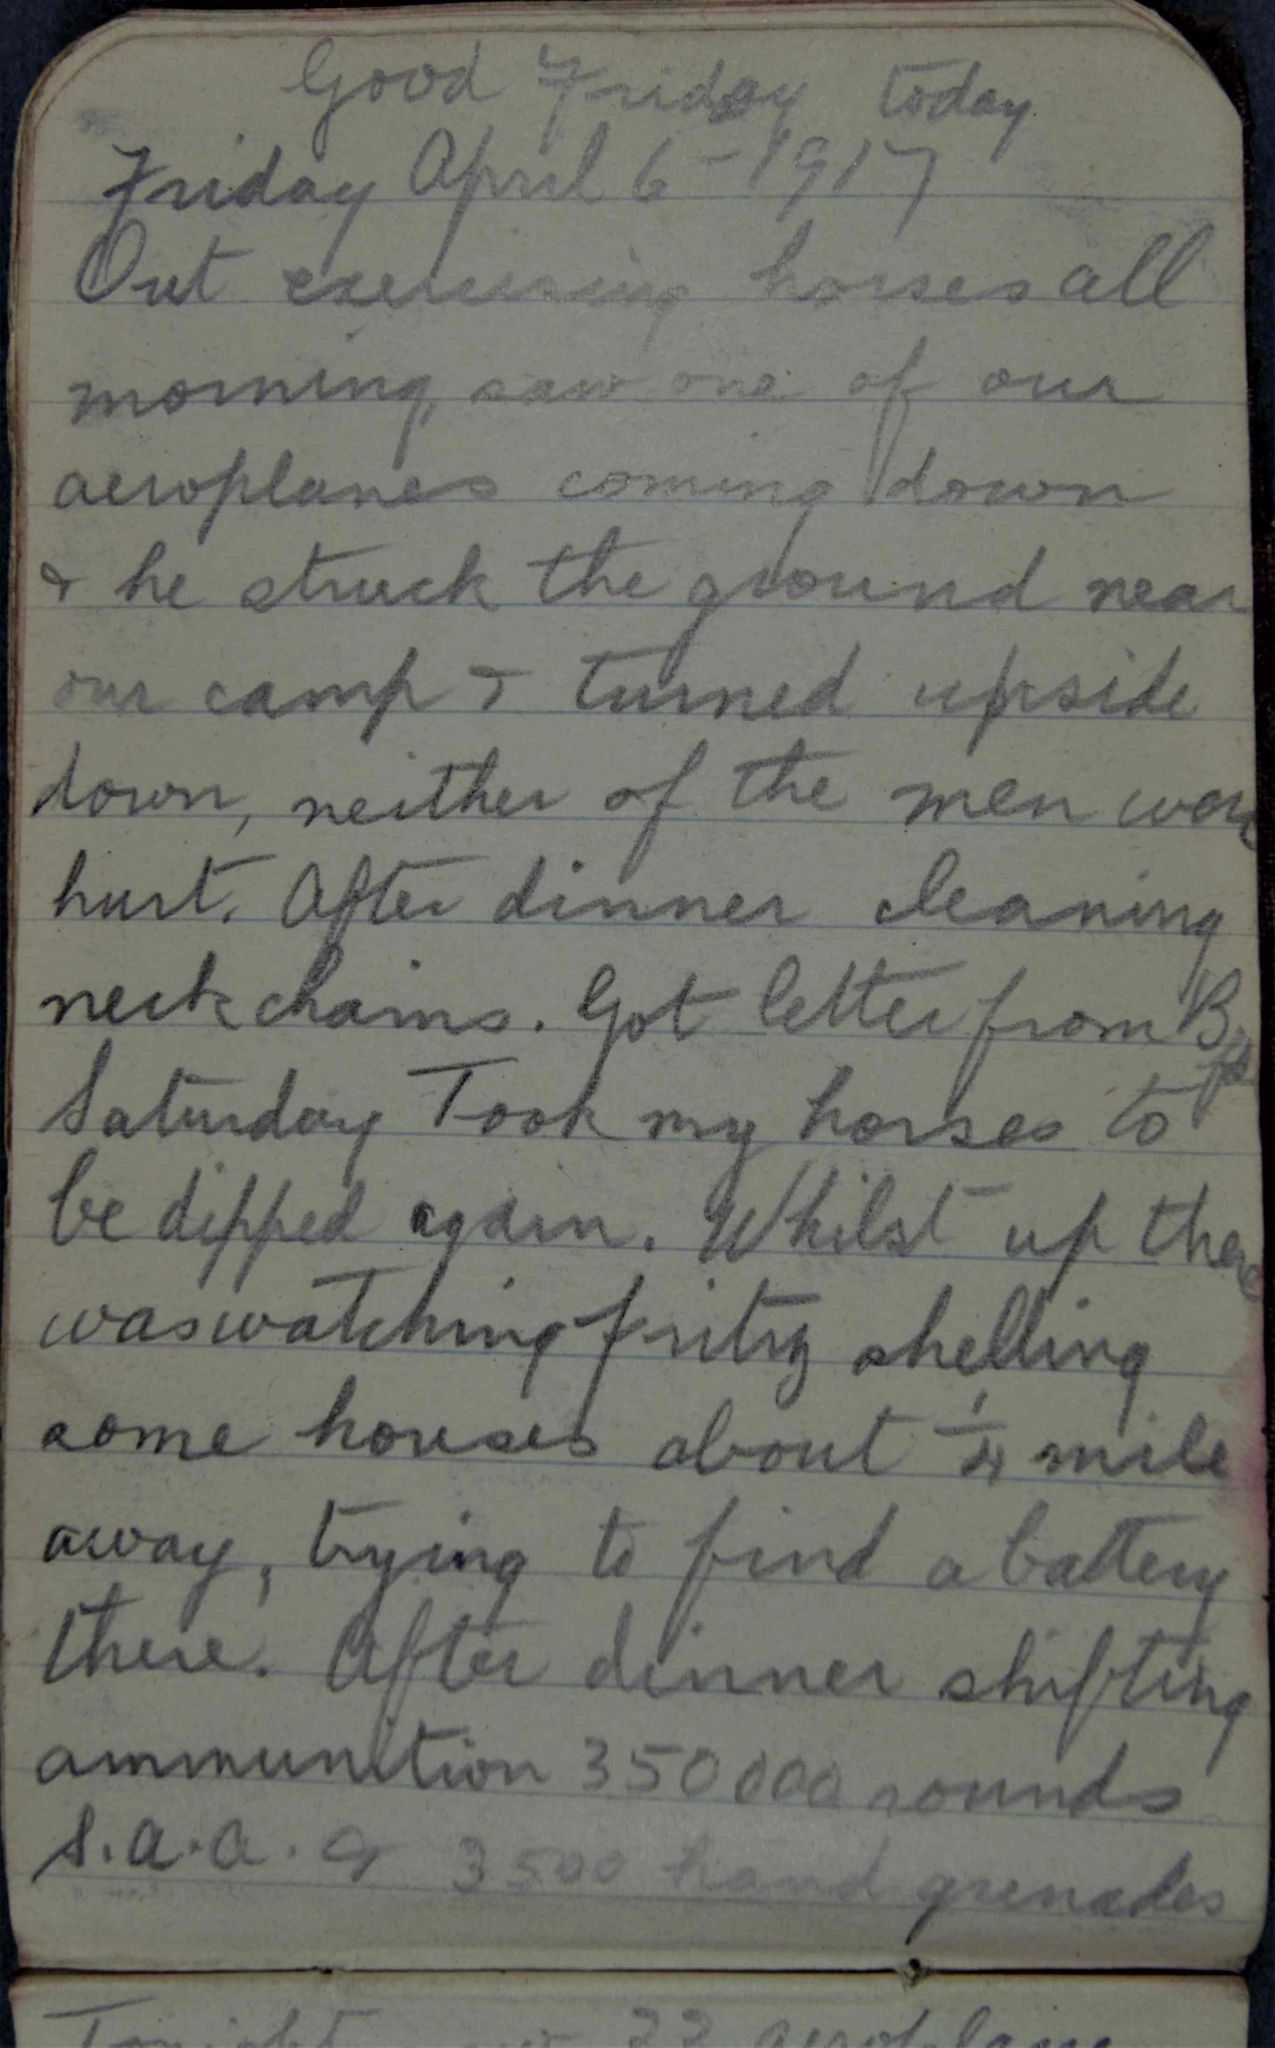 Good Friday today
Friday April 6 - 1917
Out exercising horses all
morning, saw one of our
aeroplanes coming down
& he struck the ground near
our camp & turned upside
down, neither of the men were
hurt. After dinner cleaning
neck chains. Got letter from
Saturday Took my horses to
be dipped again. Whilst up there
was watching fritz shelling
some houses about 1/4 mile
away, trying to find a battery
there. After dinner shifting
ammunition 350000 rounds
S.A.A. & 3500 hand grenades
Tonight 33 aeroplane